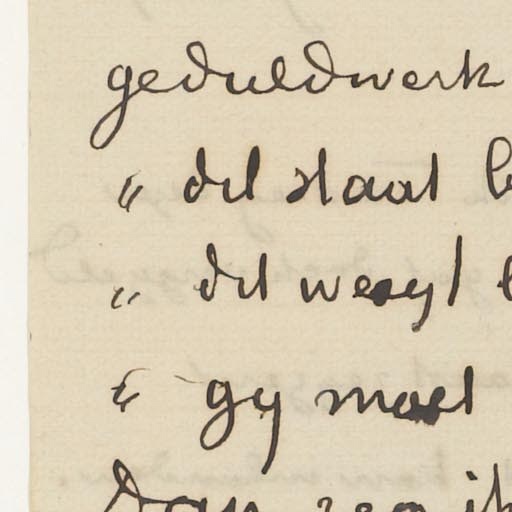 geduldwerk
„ dit staat
„ dit weegt
„ gij moet